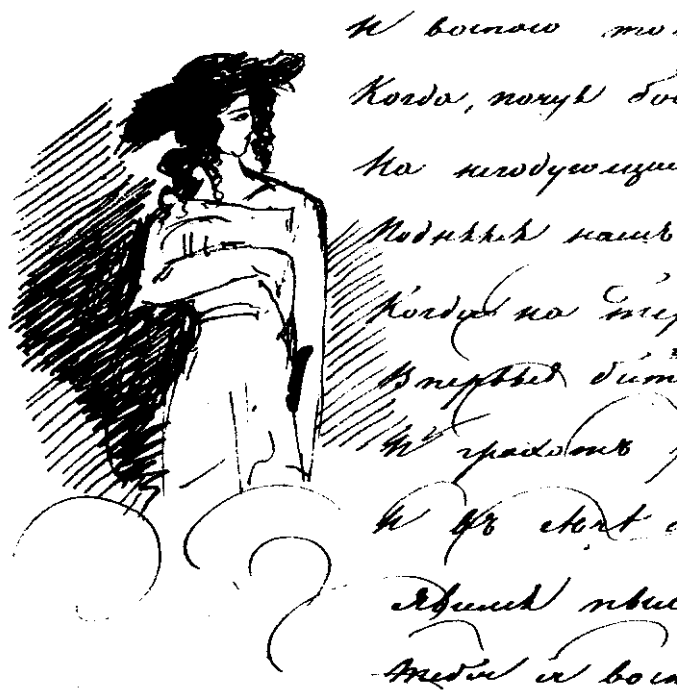 И воспою то
Когда, почуя бо
На негодующи
Поднялся нашъ
Когда на Тер
Впервые бит
И грохотъ
И въ сѣчѣ
Явился пыл
Тебя я восп